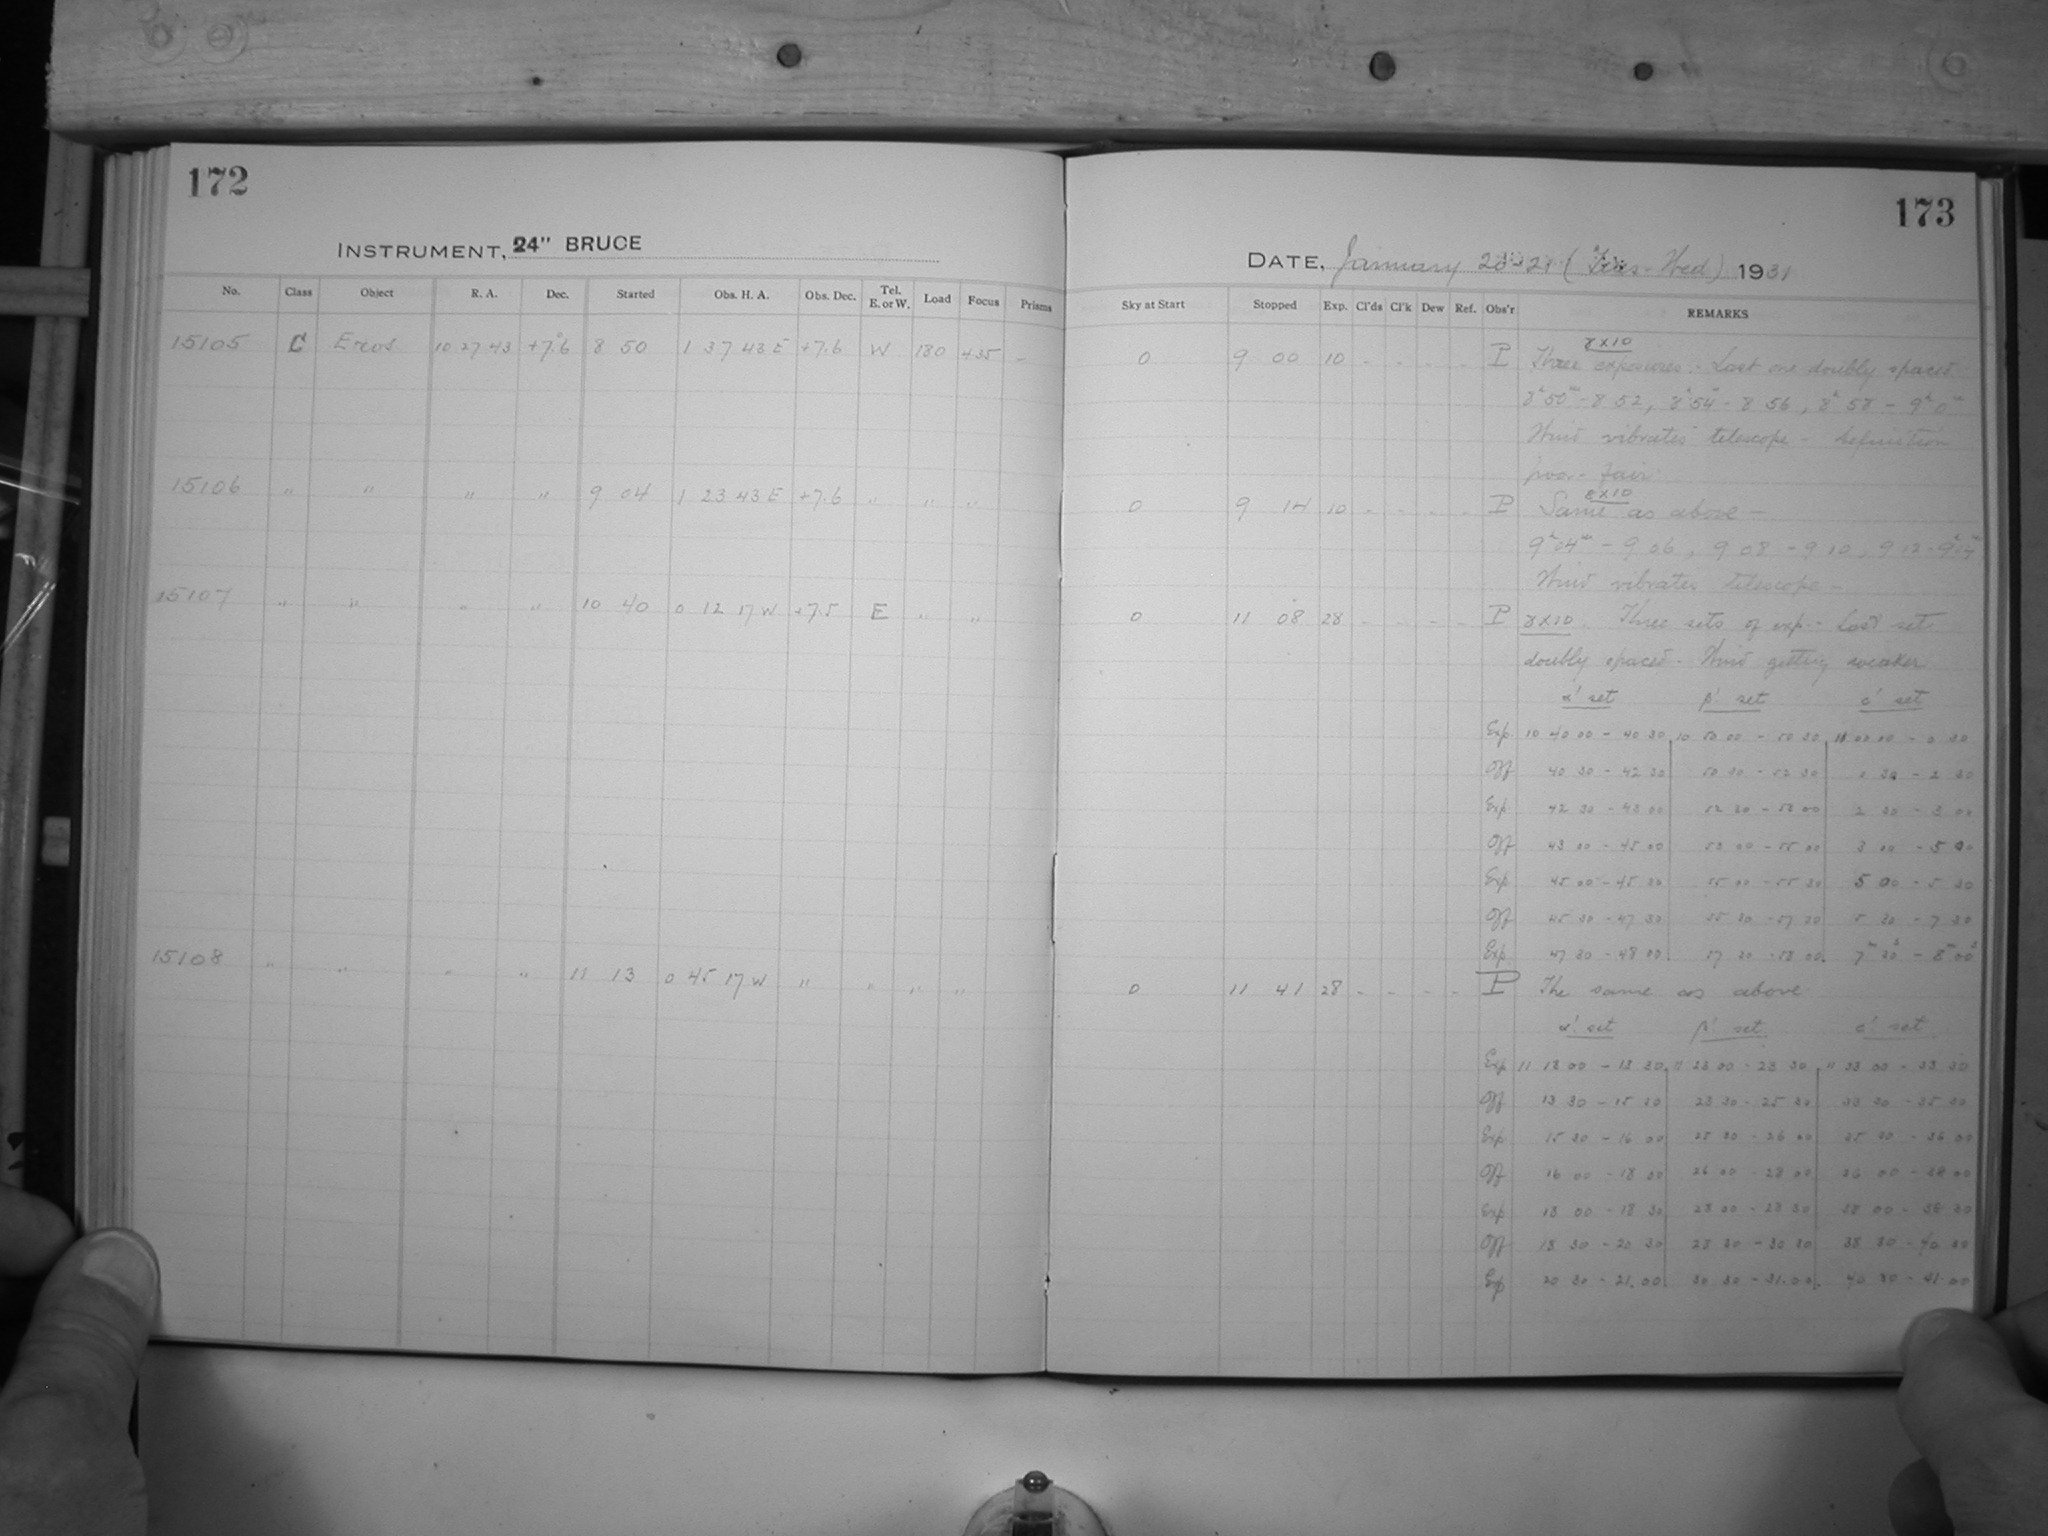 172
173
INSTRUMENT, 24" BRUCE
DATE, January 20-21 (Tues-Wed) 1931
No. Class Object R. A. Dec. Started Obs. H. A. Obs. Dec. Tel. E. or W. Load Focus Prisms Sky at Start Stopped Exp. Cl'ds Cl'k Dew Ref. Obs'r REMARKS
15105 C Eros 10 27 43 +7.6 8 50 1 37 43 E +7.6 W 180 435 - 0 9 00 10 - - - - P Three exposures. - Last one doubly spaced
8x10
8h50m-8 52, 8h54m-8 56, 8h 58 - 9h 0m
Wind vibrates telescope - definition
poor - fair
15106 " " " " 9 04 1 23 43 E +7.6 " " " 0 9 14 10 - - - - P Same as above -
8x10
9h04m - 9 06, 9 08 - 9 10, 9 12 - 9h14m
Wind vibrates telescope -
15107 " " " " 10 40 0 12 17 W +7.5 E " " 0 11 08 28 - - - - P 8x10. Three sets of exp. - Last set
doubly spaced - Wind getting weaker
α' set β' set c' set
Exp. 10 40 00 - 40 30 10 50 00 - 50 30 11 00 00 - 0 30
Off 40 30 - 42 30 50 30 - 52 30 0 30 - 2 30
Exp 42 30 - 43 00 52 30 - 53 00 2 30 - 3 00
Off 43 00 - 45 00 53 00 - 55 00 3 00 - 5 00
Exp 45 00 - 45 30 55 00 - 55 30 5 00 - 5 30
Off 45 30 - 47 30 55 30 - 57 30 5 30 - 7 30
Exp 47 30 - 48 00. 57 30 - 58 00. 7m 30s - 8m 00s
15108 " " " " 11 13 0 45 17 W " " " " 0 11 41 28 - - - - P The same as above
α' set β' set c' set
Exp 11 13 00 - 13 30 11 23 00 - 23 30 11 33 00 - 33 30
Off 13 30 - 15 30 23 30 - 25 30 33 30 - 35 30
Exp 15 30 - 16 00 25 30 - 26 00 35 30 - 36 00
Off 16 00 - 18 00 26 00 - 28 00 36 00 - 38 00
Exp 18 00 - 18 30 28 00 - 28 30 38 00 - 38 30
Off 18 30 - 20 30 28 30 - 30 30 38 30 - 40 30
Exp 20 30 - 21.00 30 30 - 31.00. 40 30 - 41.00